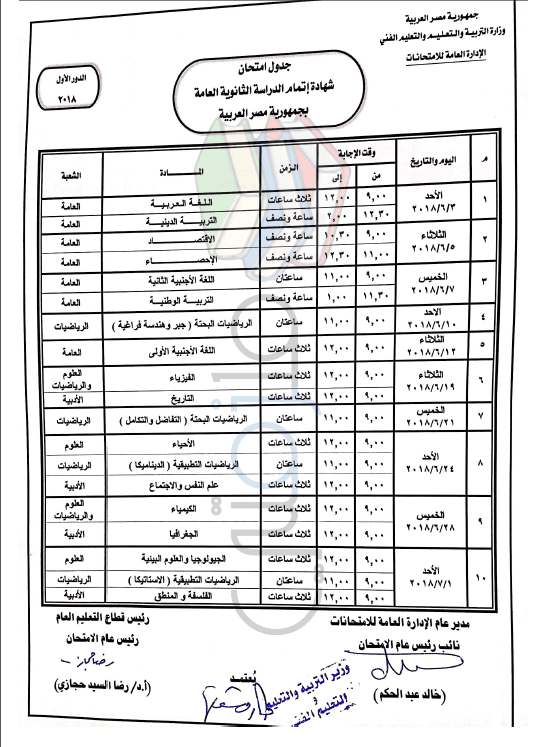 جمهورية مصر العربية
وزارة التربية والتعليم والتعليم الفني
الإدارة العامة للامتحانات
جدول امتحان
شهادة إتمام الدراسة الثانوية العامة
بجمهورية مصر العربية
الدور الأول
٢٠١٨
م اليوم والتاريخ وقت الإجابة الزمن المــــادة الشعبة
من إلى
١ الأحد ٢٠١٨/٦/٣ ٩,٠٠ ١٢,٠٠ ثلاث ساعات اللغة العربية العامة
١٢,٣٠ ٢,٠٠ ساعة ونصف التربية الدينية العامة
٢ الثلاثاء ٢٠١٨/٦/٥ ٩,٠٠ ١٠,٣٠ ساعة ونصف الاقتصاد العامة
١١,٠٠ ١٢,٣٠ ساعة ونصف الإحصاء العامة
٣ الخميس ٢٠١٨/٦/٧ ٩,٠٠ ١١,٠٠ ساعتان اللغة الأجنبية الثانية العامة
١١,٣٠ ١,٠٠ ساعة ونصف التربية الوطنية العامة
٤ الاحد ٢٠١٨/٦/١٠ ٩,٠٠ ١١,٠٠ ساعتان الرياضيات البحتة ( جبر وهندسة فراغية ) الرياضيات
٥ الثلاثاء ٢٠١٨/٦/١٢ ٩,٠٠ ١٢,٠٠ ثلاث ساعات اللغة الأجنبية الأولى العامة
٦ الثلاثاء ٢٠١٨/٦/١٩ ٩,٠٠ ١٢,٠٠ ثلاث ساعات الفيزياء العلوم والرياضيات
٩,٠٠ ١٢,٠٠ ثلاث ساعات التاريخ الأدبية
٧ الخميس ٢٠١٨/٦/٢١ ٩,٠٠ ١١,٠٠ ساعتان الرياضيات البحتة ( التفاضل والتكامل ) الرياضيات
٨ الأحد ٢٠١٨/٦/٢٤ ٩,٠٠ ١٢,٠٠ ثلاث ساعات الأحياء العلوم
٩,٠٠ ١١,٠٠ ساعتان الرياضيات التطبيقية ( الديناميكا ) الرياضيات
٩,٠٠ ١٢,٠٠ ثلاث ساعات علم النفس والاجتماع الأدبية
٩ الخميس ٢٠١٨/٦/٢٨ ٩,٠٠ ١٢,٠٠ ثلاث ساعات الكيمياء العلوم والرياضيات
٩,٠٠ ١٢,٠٠ ثلاث ساعات الجغرافيا الأدبية
١٠ الأحد ٢٠١٨/٧/١ ٩,٠٠ ١٢,٠٠ ثلاث ساعات الجيولوجيا والعلوم البيئية العلوم
٩,٠٠ ١١,٠٠ ساعتان الرياضيات التطبيقية ( الاستاتيكا ) الرياضيات
٩,٠٠ ١٢,٠٠ ثلاث ساعات الفلسفة و المنطق الأدبية
مدير عام الإدارة العامة للامتحانات
نائب رئيس عام الامتحان
(خالد عبد الحكم)
رئيس قطاع التعليم العام
رئيس عام الامتحان
رضا حجازي
(أ.د/ رضا السيد حجازي)
يُعتمد
وزير التربية والتعليم
و
التعليم الفني